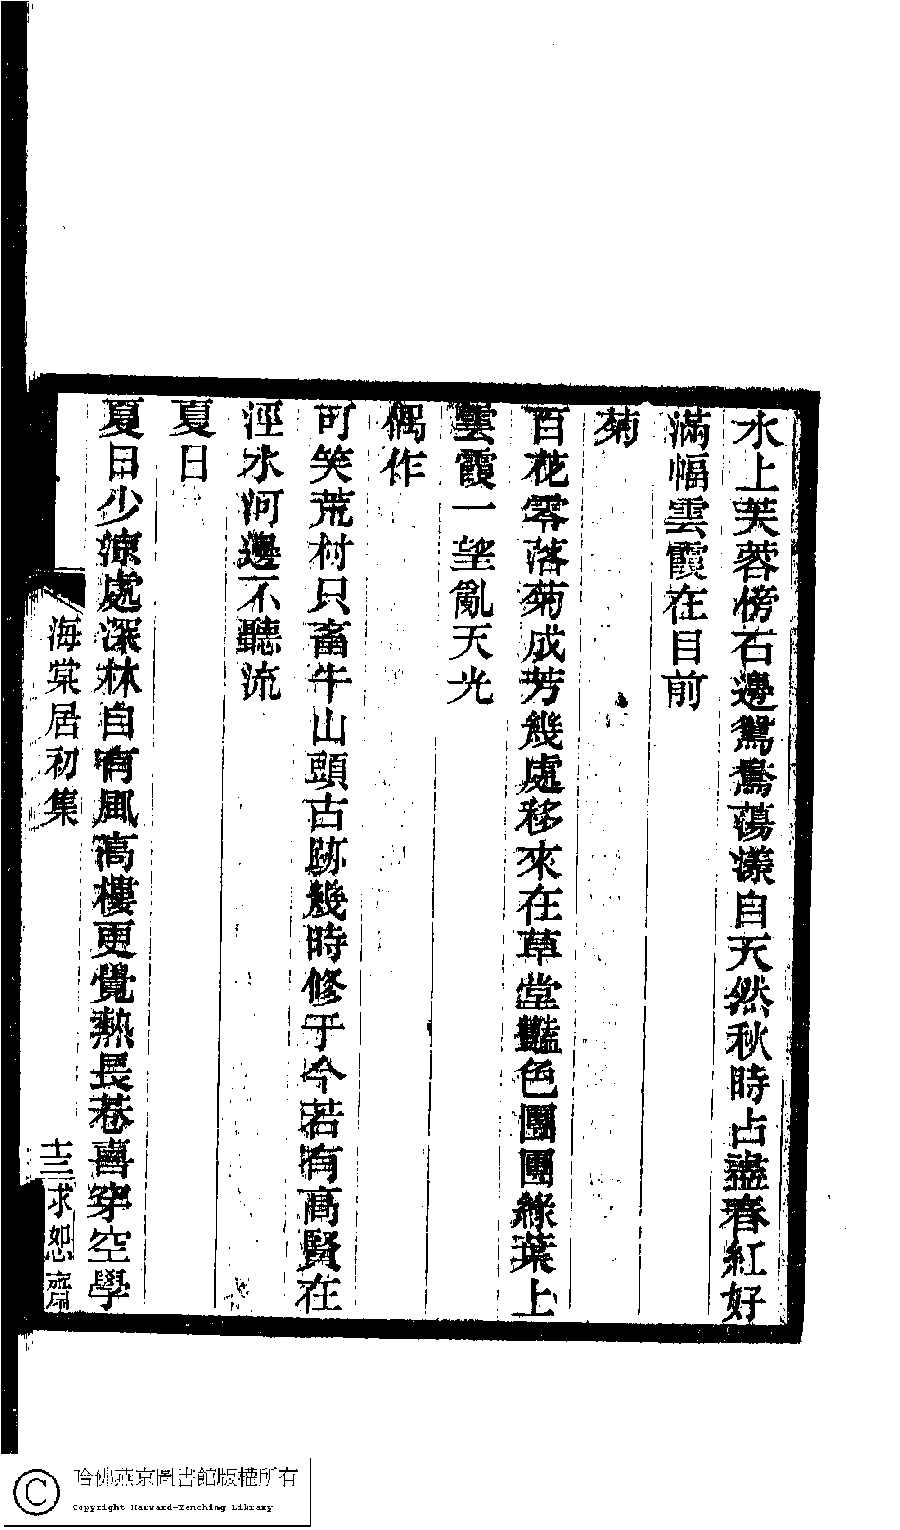 水上芙蓉傍石邊鴛鴦蕩漾自天然秋時占盡春紅好
滿幅雲霞在目前
菊
百花零落菊成芳幾處移來在草堂豔色團團綠葉上
雲霞一望亂天光
偶作
可笑荒村只畜牛山頭古跡幾時修于今若有高賢在
涇水河邊不聽流
夏日
夏日少涼處深林自有風高樓更覺熱長巷喜穿空學
海棠居初集
十三
求恕齋
哈佛燕京圖書館版權所有
Copyright Harvard-Yenching Library